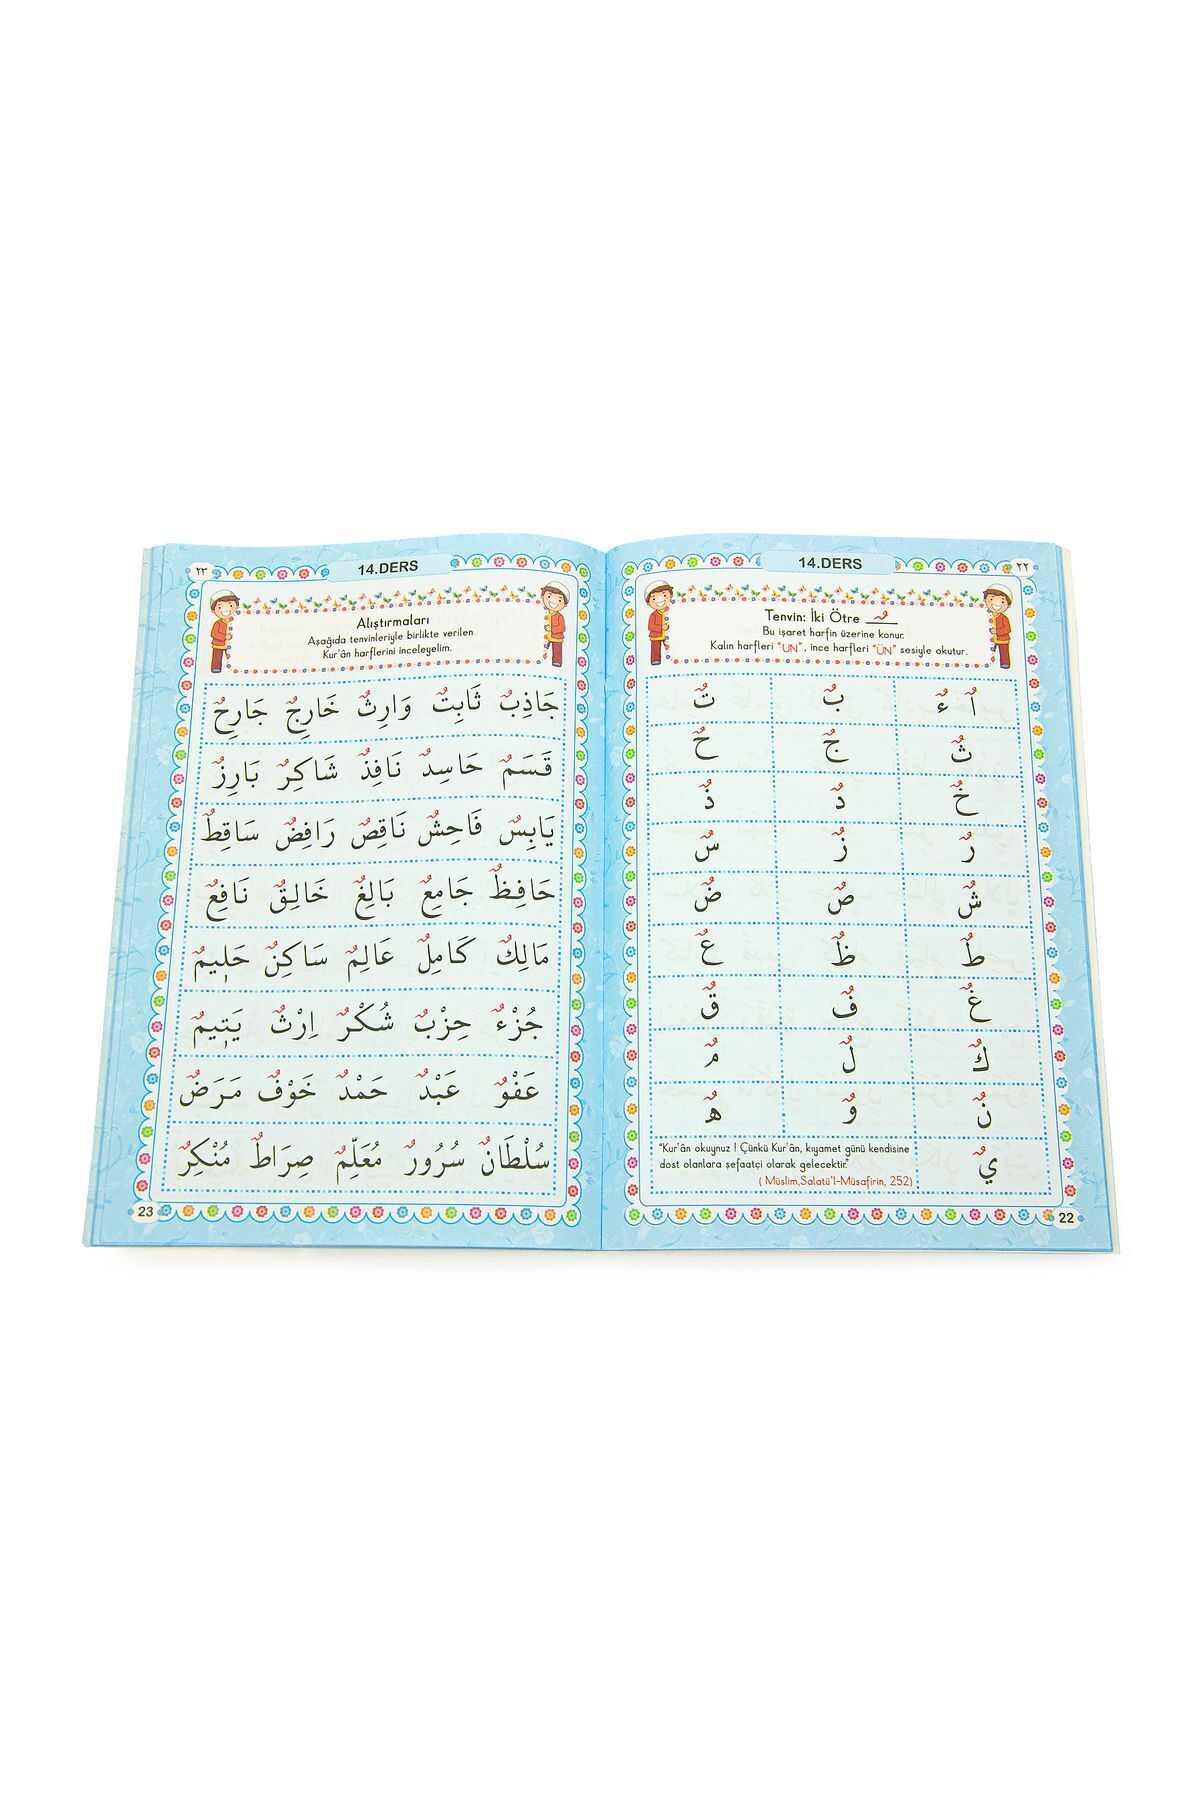 ٢٢
14.DERS
Tenvin: İki Ötre ـٌ
Bu işaret harfin üzerine konur.
Kalın harfleri "UN", ince harfleri "ÜN" sesiyle okutur.
اٌ ءٌ بٌ تٌ
ثٌ جٌ حٌ
خٌ دٌ ذٌ
رٌ زٌ سٌ
شٌ صٌ ضٌ
طٌ ظٌ عٌ
غٌ فٌ قٌ
كٌ لٌ مٌ
نٌ وٌ هٌ
يٌ
"Kur'ân okuyunuz ! Çünkü Kur'ân, kıyamet günü kendisine
dost olanlara şefaatçi olarak gelecektir."
( Müslim,Salatü'l-Müsafirin, 252)
22
٢٣
14.DERS
Alıştırmaları
Aşağıda tenvinleriyle birlikte verilen
Kur'ân harflerini inceleyelim.
جَاذِبٌ ثَابِتٌ وَارِثٌ خَارِجٌ جَارِحٌ
قَسَمٌ حَاسِدٌ نَافِذٌ شَاكِرٌ بَارِزٌ
يَابِسٌ فَاحِشٌ نَاقِصٌ رَافِضٌ سَاقِطٌ
حَافِظٌ جَامِعٌ بَالِغٌ خَالِقٌ نَافِعٌ
مَالِكٌ كَامِلٌ عَالِمٌ سَاكِنٌ حَلِيمٌ
جُزْءٌ حِزْبٌ شُكْرٌ اِرْثٌ يَتِيمٌ
عَفْوٌ عَبْدٌ حَمْدٌ خَوْفٌ مَرَضٌ
سُلْطَانٌ سُرُورٌ مُعَلِّمٌ صِرَاطٌ مُنْكِرٌ
23